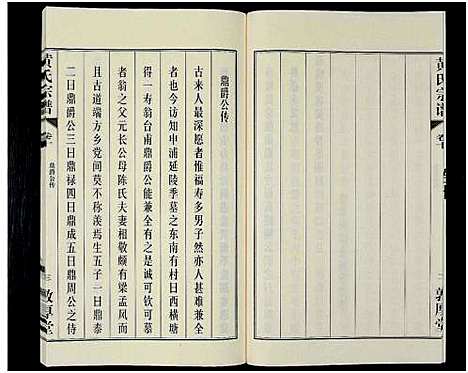 黄氏宗谱
卷
二
敦厚堂
鼎爵公传
古来人最深愿者惟福寿多男子然亦人甚难兼全
者也今访知申浦延陵季墓之东南有村曰西横塘
得一寿翁台甫鼎爵公能兼有之是诚可钦可慕
者翁之父元长公母陈氏夫妻相敬颇有梁孟风而
且古道端方乡党间莫不称羡焉生五子一曰鼎泰
二曰鼎爵公三曰鼎禄四曰鼎成五曰鼎周公之侍
黄氏宗谱
卷一
鼎爵公传
三
敦厚堂